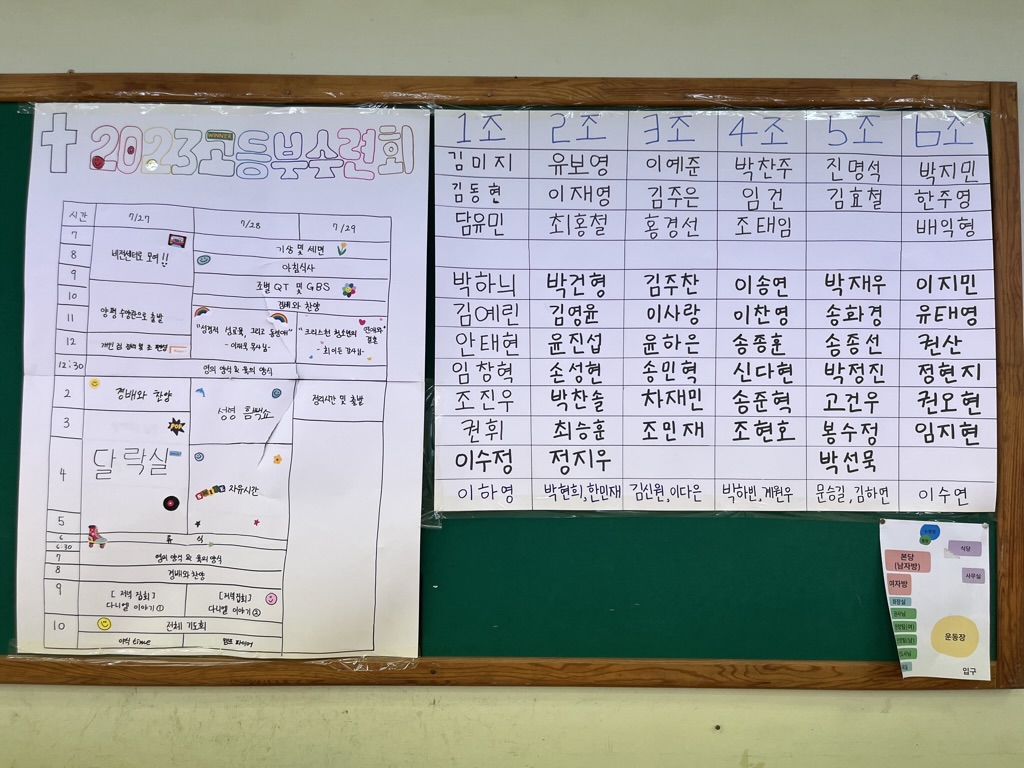 2023 고등부수련회
WINNER
시간 7/27 7/28 7/29
7
8
9
10
11
12
12:30
2
3
4
5
6
6:30
7
8
9
10
비전센터로 모여!!
기상 및 세면
아침식사
조별 QT 및 GBS
경배와 찬양
양평 수양관으로 출발
"성경적 성교육, 그리고 동성애"
"크리스천 청소년의 연애와 결혼"
영의 양식 & 육의 양식
경배와 찬양
성령 흠뻑쇼
정리시간 및 출발
POP
달락실
자유시간
휴식
영의 양식 & 육의 양식
경배와 찬양
[저녁 집회]
다니엘 이야기①
[저녁집회]
다니엘 이야기②
전체 기도회
야식 time
캠프 파이어
1조 2조 3조 4조 5조 6조
김미지 유보영 이예준 박찬주 진명석 박지민
김동현 이재영 김주은 임건 김효철 한주영
담유민 최홍철 홍경선 조태임 배익형
박하늬 박건형 김주찬 이송연 박재우 이지민
김예린 김영윤 이사랑 이찬영 송화경 유태영
안태현 윤진섭 윤하은 송종훈 송종선 권산
임창혁 손성현 송민혁 신다현 박정진 정현지
조진우 박찬솔 차재민 송준혁 고건우 권오현
권휘 최승훈 조민재 조현호 봉수정 임지현
이수정 정지우 박선묵
이하영 박현희,한민재 김신원,이다은 박하빈,계원우 문승길,김하면 이수연
식당
본당
(남자방)
사무실
여자방
화장실
운동장
입구